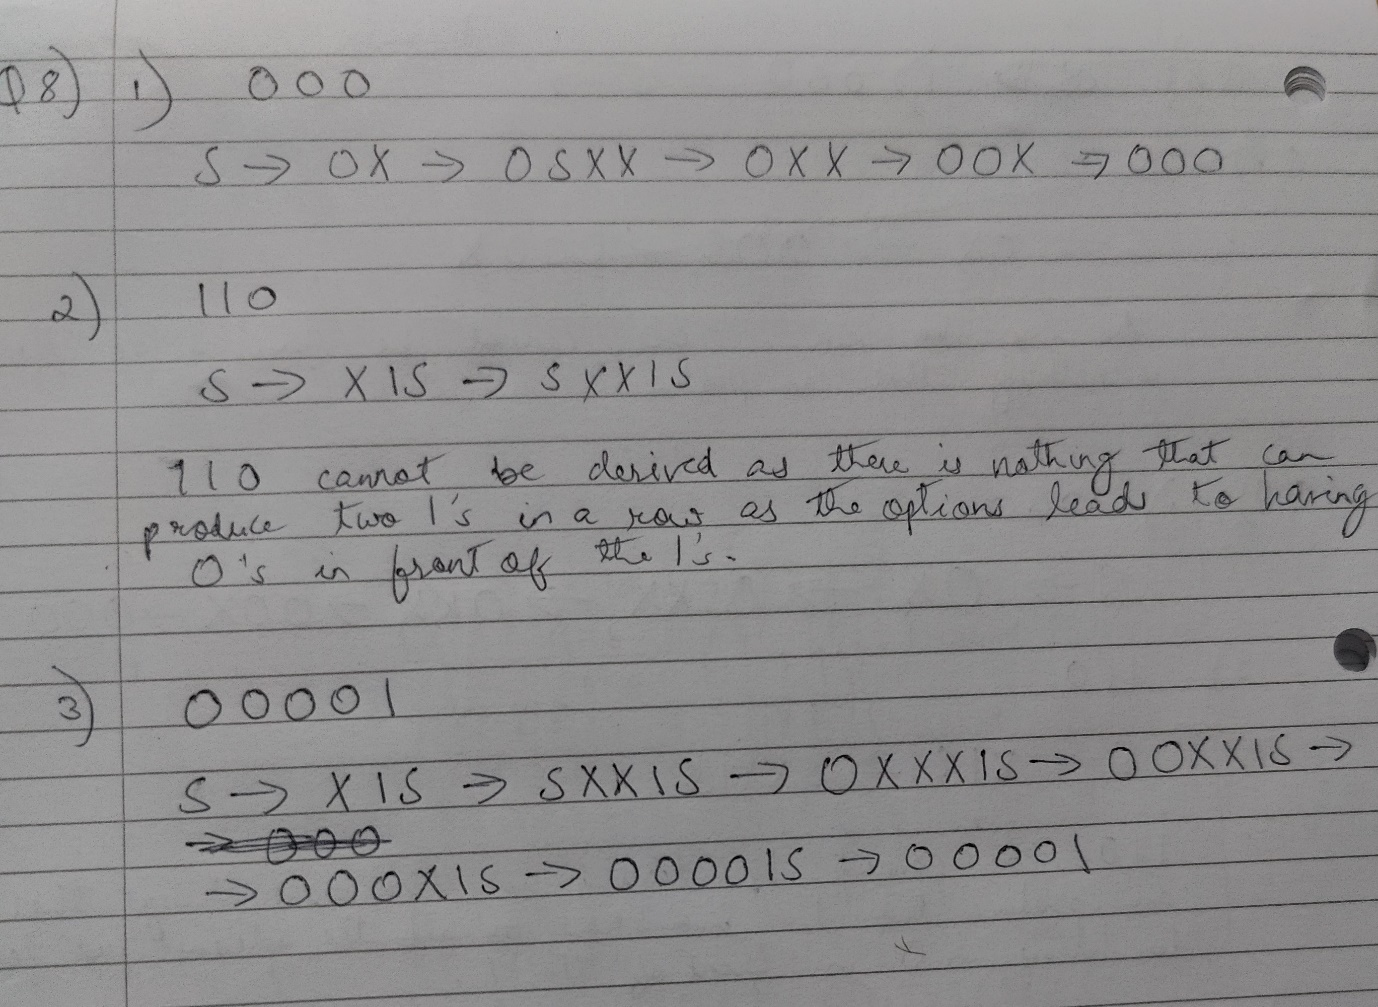 Q8) 1) 000
S → 0X → 0SXX → 0XX → 00X → 000
2) 110
S → X1S → SXX1S
110 cannot be derived as there is nothing that can
produce two 1's in a row as the options leads to having
0's in front off the 1's.
3) 00001
S → X1S → SXX1S → 0XXX1S → 00XX1S →
→ 000
→ 000X1S → 00001S → 00001